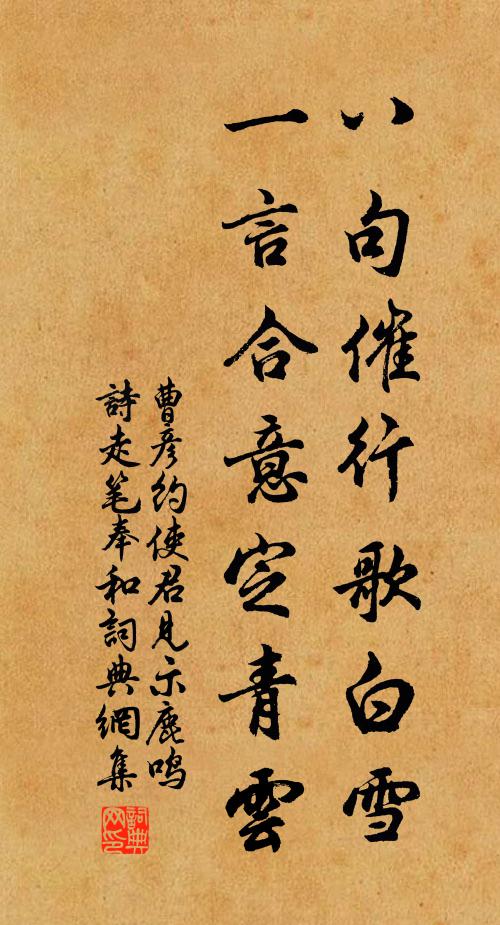 八句催行歌白雪
一言合意定青雲
曹彦约使君見示鹿鸣
詩走笔奉和詞典網集
詞典
网印